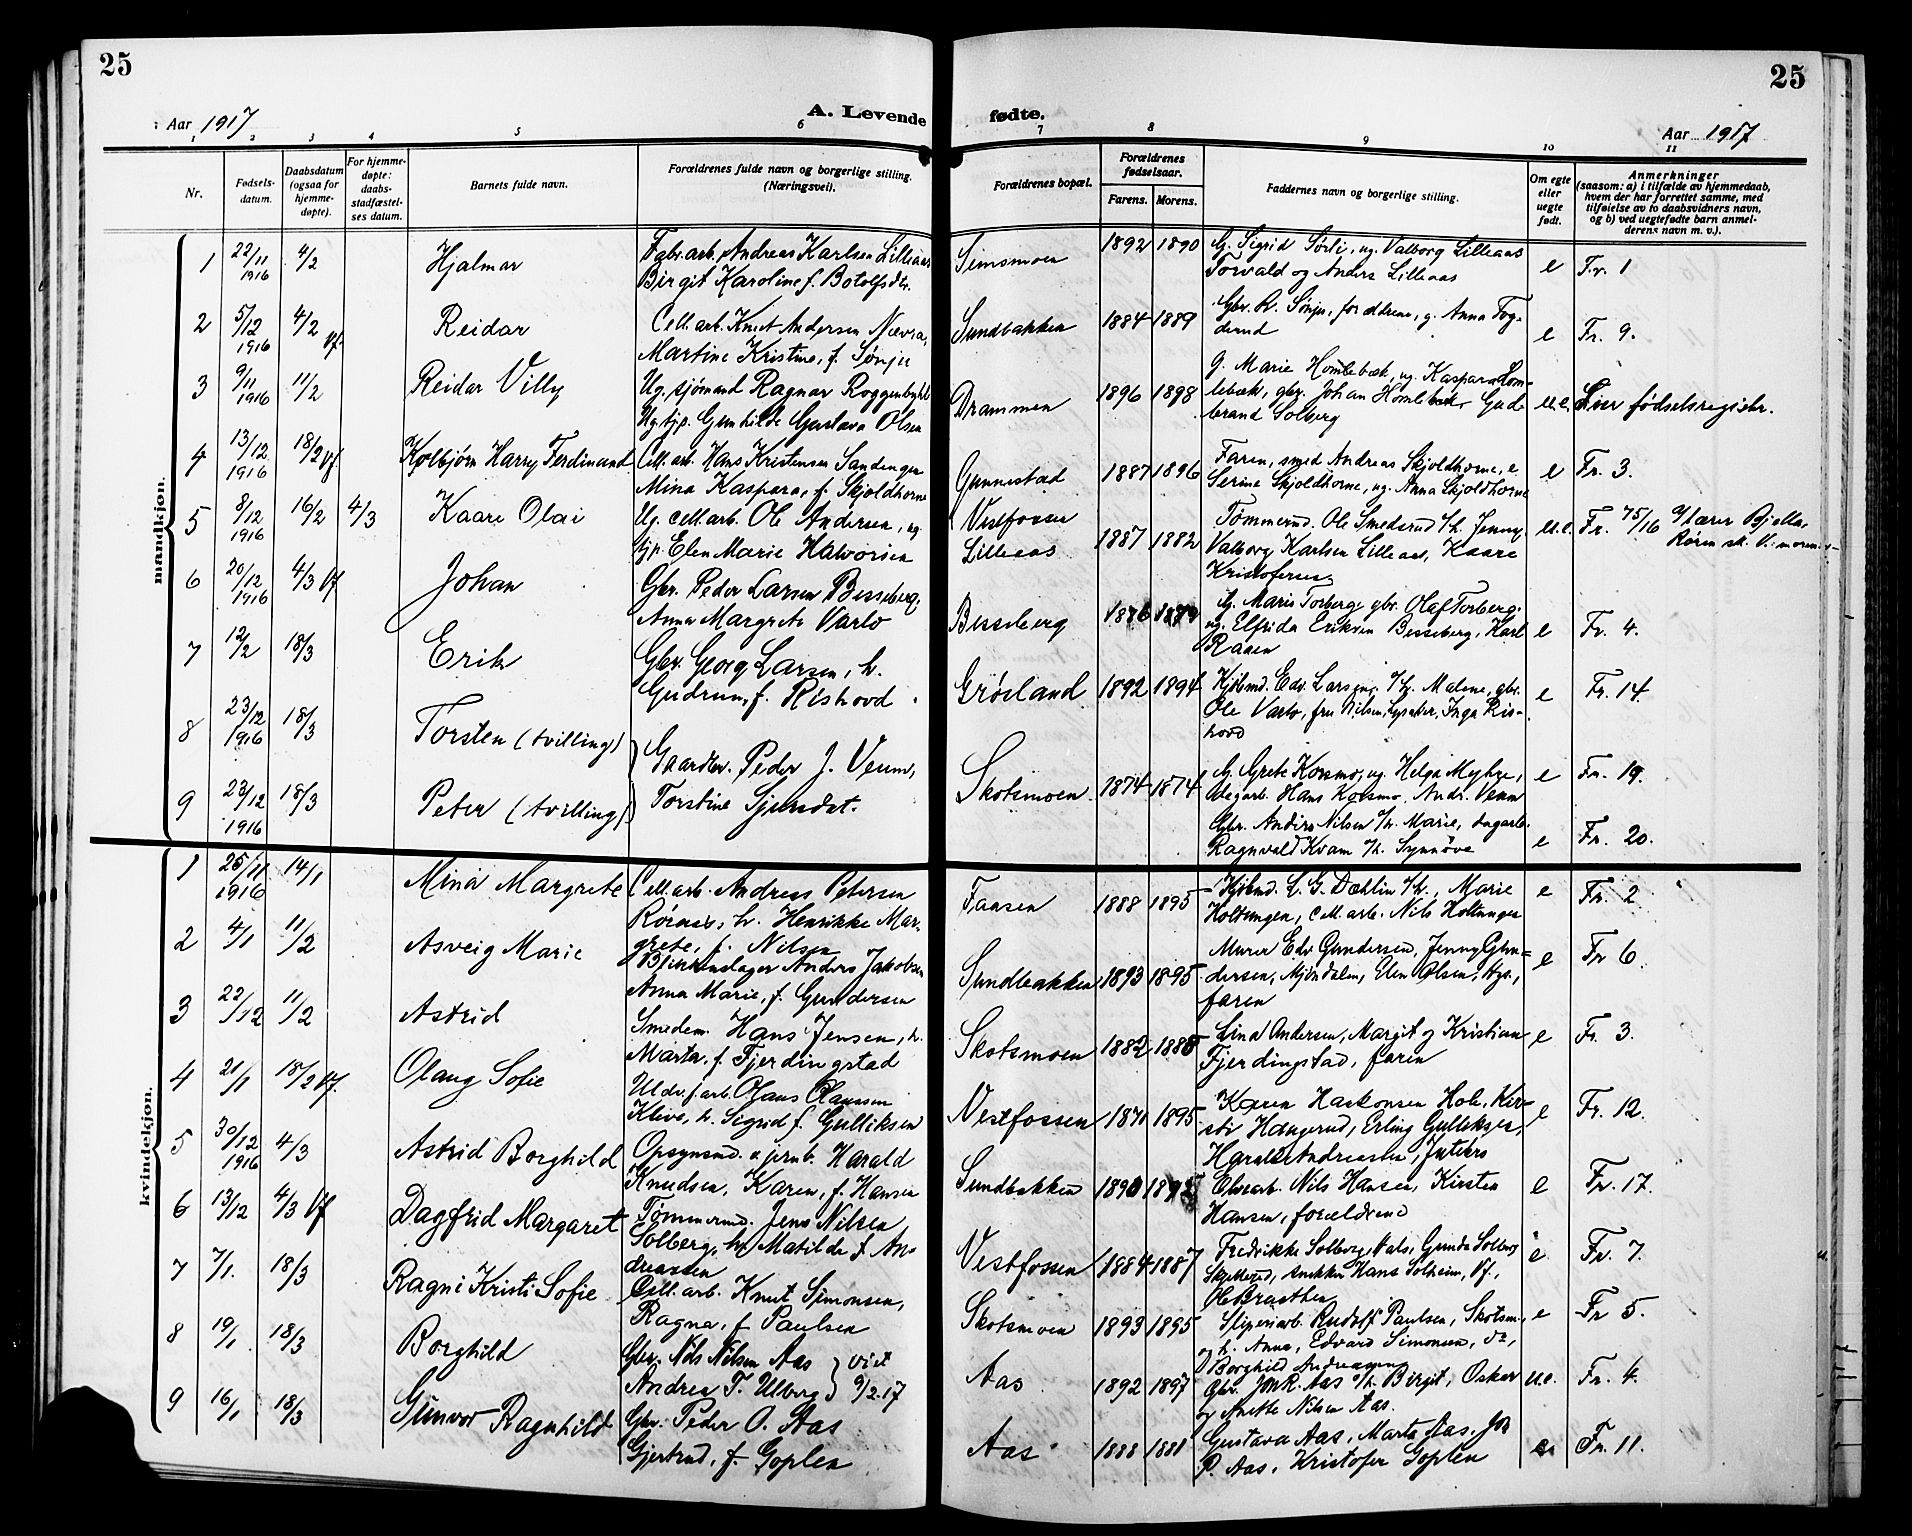 25
25
Aar 1917
A. Levende
fødte.
Aar 1917
1 2 3 4 5 6 7 8 9 10 11
Nr.
Fødsels-
datum.
Daabsdatum
(ogsaa for
hjemme-
døpte).
For hjemme-
døpte:
daabs-
stadfæstel-
ses datum.
Barnets fulde navn.
Forældrenes fulde navn og borgerlige stilling.
(Næringsvei).
Forældrenes bopæl.
Forældrenes
fødselsaar.
Farens. Morens.
Faddernes navn og borgerlige stilling.
Om egte
eller
uegte
født.
Anmerkninger
(saasom: a) i tilfælde av hjemmedaab,
hvem der har forrettet samme, med
tilføielse av to daabsvidners navn,
og b) ved uegtefødte barn anmel-
derens navn m. v.).
mandkjøn.
1 22/11 1916 4/2 Hjalmar
Fabr.arb. Andreas Karlsen Lilleaas
Birgit Karoline f. Botolfsdr.
Semsmoen 1892 1890
G. Sigrid Sørli, ug. Valborg Lilleaas
Torvald og Anders Lilleaas
e Fr. 1
2 5/12 1916 4/2 Vf. Reidar
Cell.arb. Knut Andersen Nævra,
Martine Kristine, f. Sønju
Sundbakken 1884 1889
Gbr. A. Sønju, forældrene, g. Anna Fog-
derud
e Fr. 9.
3 9/11 1916 11/2 Reidar Villy
Ug. sjømand Ragnar Roggenbykh
Ug. tjp. Gunhilde Gustava Olsen
Drammen 1896 1898
g. Marie Homlebæk, ug. Kaspara Hom-
lebæk, gbr. Johan Homlebæk, Gud-
brand Solberg
u.e. Lier fødselsregistr.
4 13/12 1916 18/2 Vf. Kolbjørn Harry Ferdinand
Cell. arb. Hans Kristensen Sandenger
Mina Kaspara, f. Skjoldhorne
Gunnestad 1887 1896
Faren, smed Andreas Skjoldhorne, e.
Serine Skjoldhorne, ug. Anna Skjoldhorne
e Fr. 3.
5 8/12 1916 16/2 4/3 Kaare Olai
Ug. cell.arb. Ole Andersen, ug.
tjp. Elen Marie Halvorsen
Vestfossen
Lilleaas 1887 1882
Tømmermd. Ole Smedsrud m/h. Jenny,
Valborg Karlsen Lilleaas, Kaare
Kristofersen
u.e. Fr. 75/16
6 20/12 1916 4/3 Vf Johan
Gbr. Peder Larsen Besseberg,
Anna Margrete Varlo
Besseberg 1876
G. Maris Torberg, gbr. Olaf Torberg,
ug. Elfrida Eriksen Besseberg, Karl
Raaen
e Fr. 4.
7 12/2 18/3 Erik
Gbr. Georg Larsen, h.
Gudrun, f. Rishovd
Grøsland 1892 1894
Kjøbmd. Edv. Larsen, m/h. Malene, gbr.
Ole Varlo, fru Nilsen, Lysaker, Inga Ris-
hovd
e Fr. 14
8 23/12 1916 18/3 Torsten (tvilling)
Gaardbr. Peder J. Veum,
Torstine Sjursdat.
Skotsmoen 1874 1874
G. Grete Korsmo, ug. Helga Myhre,
Hans Korsmo, Andr. Veum
e Fr. 19.
9 23/12 1916 18/3 Peter (tvilling)
Gbr. Anders Nilsen m/h. Marie, dagarb.
Ragnvald Kvam m/h. Synnøve
e Fr. 20.
kvindekjøn.
1 25/11 1916 14/1 Mina Margrete
Cell. arb. Andreas Petersen
Røraas, h. Henrikke Mar-
grete, f. Nilsen
Faasen 1888 1895
Kjøbmd. L. G. Dæhlin m/h., Marie
Holtungen, cell.arb. Nils Holtungen
e Fr. 2
2 4/1 11/2 Asveig Marie
Anders Jakobsen
Anna Marie, f. Gundersen
Sundbakken 1893 1895
Murer Edv. Gundersen, Jenny Gun-
dersen, Mjøndalen, Elen Olsen,
faren
e Fr 6.
3 22/12 11/2 Astrid
Smedem. Hans Jensen, h.
Marta, f. Fjerdingstad
Skotsmoen 1882 1885
Lina Andersen, Margit og Kristian
Fjerdingstad, faren
e Fr. 3.
4 21/1 18/2 Vf. Olaug Sofie
Uldv.f.arb. Olaus Olaussen
Kleve, h. Sigrid f. Gulliksen
Vestfossen 1871 1895
Karen Haakonsen Hole, Kir-
sti Haugerud, Erling Gulliksen,
Harald Andreassen,
e Fr. 12.
5 30/12 1916 4/3 Astrid Borghild
Opsynsmd. v. jernb. Harald
Knudsen, Karen, f. Hansen
Sundbakken 1890
Nils Hansen, Kirsten
Hansen, forældrene
e Fr. 17.
6 13/12 4/3 Vf Dagfrid Margaret
Tømmermd. Jens Nilsen
Solberg, h. Matilde f. An-
dreasen
Vestfossen 1884 1887
Fredrikke Solberg, Vals, Gunda Solberg
Skjelterud, snekker Hans Solheim, Vf.,
Ole Braathen
e. Fr. 7.
7 7/1. 18/3 Ragni Kristi Sofie
Cell. arb. Knut Simonsen,
Ragna, f. Paulsen
Skotsmoen 1893 1895
Sliperiarb. Rudolf Paulsen, Skotsm.,
og h. Anna, Edvard Simonsen, do,
Borghild Andreassen
e Fr 5.
8 19/1 18/3 Borghild
Gbr. Nils Nilsen Aas
Andrea T. Ulberg } viet 9/2.17
Aas 1892 1897
Gbr. Joh.R. Aas m/h. Birgit, Oskar
og Anette Nilsen Aas.
u.e. Fr. 4.
9 16/1 18/3 Gunvor Ragnhild
Gbr. Peder O. Aas
Gjertrud, f. Goplen
Aas 1888 1881
Gustava Aas, Marta Aas, Joh
P. Aas, Kristofer Goplen
e. Fr. 11.